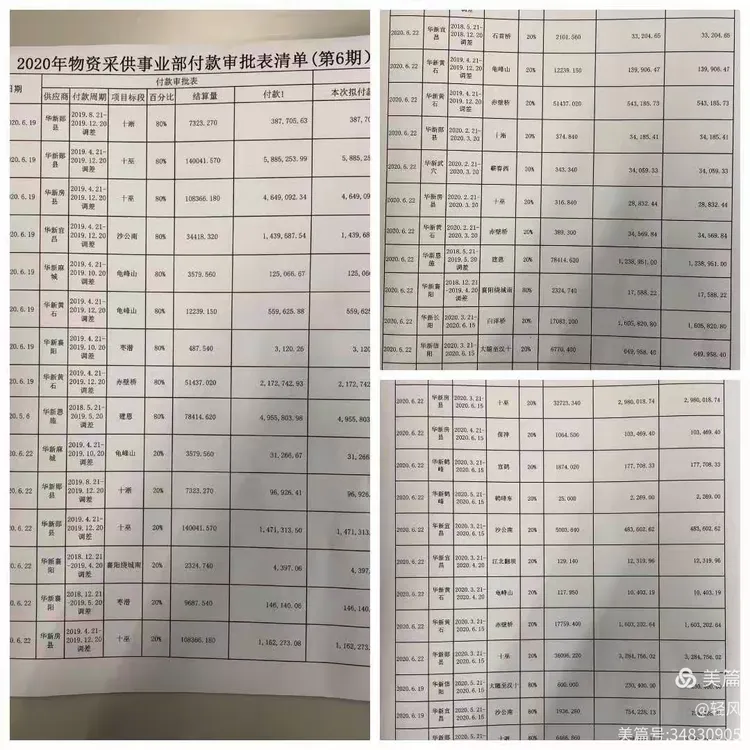 2020年物资采供事业部付款审批表清单(第6期)
付款审批表
日期 供应商 付款周期 项目标段 百分比 结算量 付款1 本次拟付款
2020.6.19 华新郧县 2019.8.21-2019.12.20调差 十淅 80% 7323.270 387,705.63 387,70
2020.6.19 华新郧县 2019.4.21-2019.12.20调差 十巫 80% 140041.570 5,885,253.99 5,885,25
2020.6.19 华新房县 2019.4.21-2019.12.20调差 十巫 80% 108366.180 4,649,092.34 4,649,09
2020.6.19 华新宜昌 2019.4.21-2019.12.20调差 沙公南 80% 34418.320 1,439,687.54 1,439,68
2020.6.19 华新麻城 2019.4.21-2019.10.20调差 龟峰山 80% 3579.560 125,066.67 125,06
2020.6.19 华新黄石 2019.4.21-2019.12.20调差 龟峰山 80% 12239.150 559,625.88 559,62
2020.6.19 华新襄阳 2019.4.21-2019.10.20调差 枣潜 80% 487.540 3,120.26 3,12
2020.6.19 华新黄石 2019.4.21-2019.12.20调差 赤壁桥 80% 51437.020 2,172,742.93 2,172,74
2020.5.6 华新恩施 2018.5.21-2019.5.20调差 建恩 80% 78414.620 4,955,803.98 4,955,80
2020.6.22 华新麻城 2019.4.21-2019.10.20调差 龟峰山 20% 3579.560 31,266.67 31,266
2020.6.22 华新郧县 2019.8.21-2019.12.20调差 十淅 20% 7323.270 96,926.41 96,926
2020.6.22 华新郧县 2019.4.21-2019.12.20调差 十巫 20% 140041.570 1,471,313.50 1,471,313
2020.6.22 华新襄阳 2018.12.21-2019.4.20调差 襄阳绕城南 20% 2324.740 4,397.06 4,397
2020.6.22 华新襄阳 2018.12.21-2019.5.20调差 枣潜 20% 9687.540 146,140.06 146,140
2020.6.22 华新房县 2019.4.21-2019.12.20调差 十巫 20% 108366.180 1,162,273.08 1,162,273
2020.6.22 华新宜昌 2018.5.21-2019.12.20调差 石首桥 20% 33,204.65 33,204.65
2020.6.22 华新黄石 2019.4.21-2019.12.20调差 龟峰山 20% 12239.150 139,906.47 139,906.47
2020.6.22 华新黄石 2019.4.21-2019.12.20调差 赤壁桥 20% 51437.020 543,185.73 543,185.73
2020.6.22 华新郧县 2020.2.21-2020.3.20 十淅 20% 374.840 34,185.41 34,185.41
2020.6.22 华新武穴 2020.2.21-2020.3.20 蕲春西 20% 343.340 34,059.33 34,059.33
2020.6.22 华新房县 2020.2.21-2020.3.20 十巫 20% 316.840 28,832.44 28,832.44
2020.6.22 华新黄石 2020.2.21-2020.3.20 赤壁桥 20% 389.300 34,569.84 34,569.84
2020.6.22 华新恩施 2018.5.21-2019.5.20调差 建恩 20% 78414.620 1,238,951.00 1,238,951.00
2020.6.22 华新襄阳 2018.12.21-2019.4.20调差 襄阳绕城南 80% 2324.740 17,588.22 17,588.22
2020.6.22 华新长阳 2020.3.21-2020.6.15 白洋桥 20% 17082.200 1,605,820.80 1,605,820.80
2020.6.22 华新信阳 2020.3.21-2020.6.15 大随至汉十 20% 6770.400 649,958.40 649,958.40
2020.6.22 华新房县 2020.3.21-2020.6.15 十巫 20% 32723.340 2,980,018.74 2,980,018.74
2020.6.22 华新房县 2020.3.21-2020.6.15 保神 20% 103,469.40 103,469.40
2020.6.22 华新鹤峰 2020.3.21-2020.6.15 宣鹤 20% 1874.020 177,708.33 177,708.33
2020.6.22 华新鹤峰 2020.3.21-2020.6.15 鹤峰东 20% 25.000 2,269.00 2,269.00
2020.6.22 华新宜昌 2020.3.21-2020.6.15 沙公南 20% 483,602.62 483,602.62
2020.6.22 华新宜昌 2020.3.21-2020.4.20 江北翻坝 20% 129.140 12,319.96 12,319.96
2020.6.22 华新黄石 2020.3.21-2020.4.20 龟峰山 20% 10,403.19 10,403.19
2020.6.22 华新黄石 2020.3.21-2020.6.15 赤壁桥 20% 17759.400 1,603,202.64 1,603,202.64
2020.6.22 华新郧县 2020.3.21-2020.6.15 十巫 20% 3,284,756.02 3,284,756.02
2020.6.19 华新信阳 2020.3.21-2020.6.15 大随至汉十 80%
2020.6.19 华新宜昌 2020.3.21-2020.6.15 沙公南 80% 754,225.13
2020.6.19 十淅 80%
美篇
@轻风
美篇号:34830905